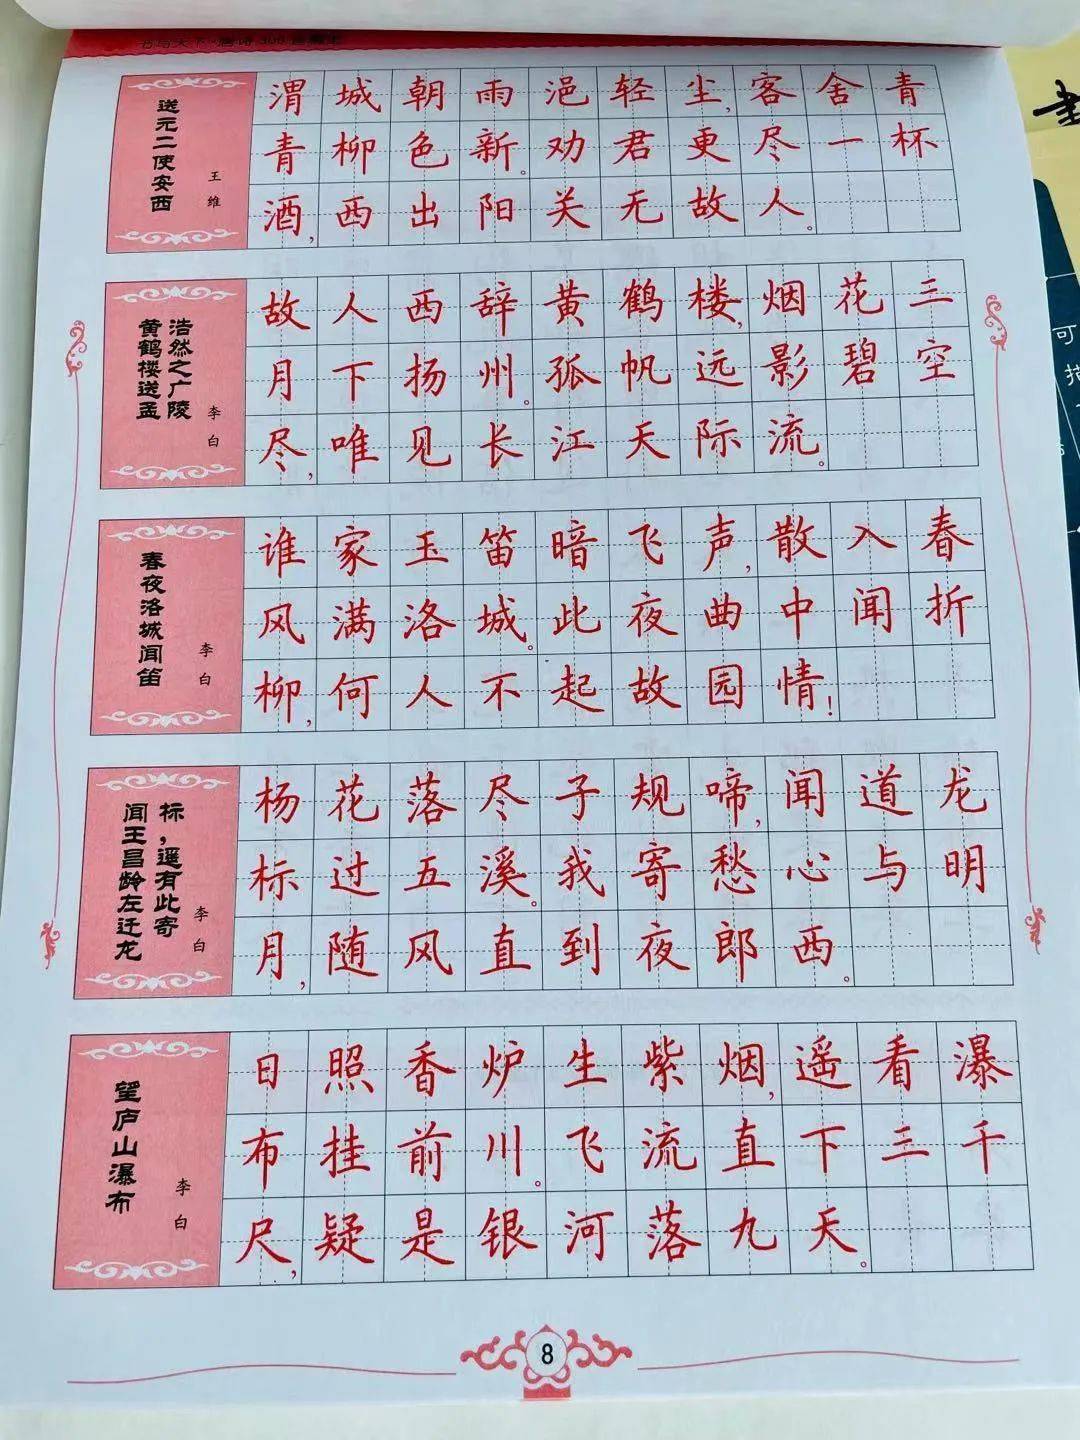 送元二使安西
王维
渭城朝雨浥轻尘,客舍青
青柳色新。劝君更尽一杯
酒,西出阳关无故人。
黄鹤楼送孟
浩然之广陵
李白
故人西辞黄鹤楼,烟花三
月下扬州。孤帆远影碧空
尽,唯见长江天际流。
春夜洛城闻笛
李白
谁家玉笛暗飞声,散入春
风满洛城。此夜曲中闻折
柳,何人不起故园情!
闻王昌龄左迁龙
标,遥有此寄
李白
杨花落尽子规啼,闻道龙
标过五溪。我寄愁心与明
月,随风直到夜郎西。
望庐山瀑布
李白
日照香炉生紫烟,遥看瀑
布挂前川。飞流直下三千
尺,疑是银河落九天。
8
可